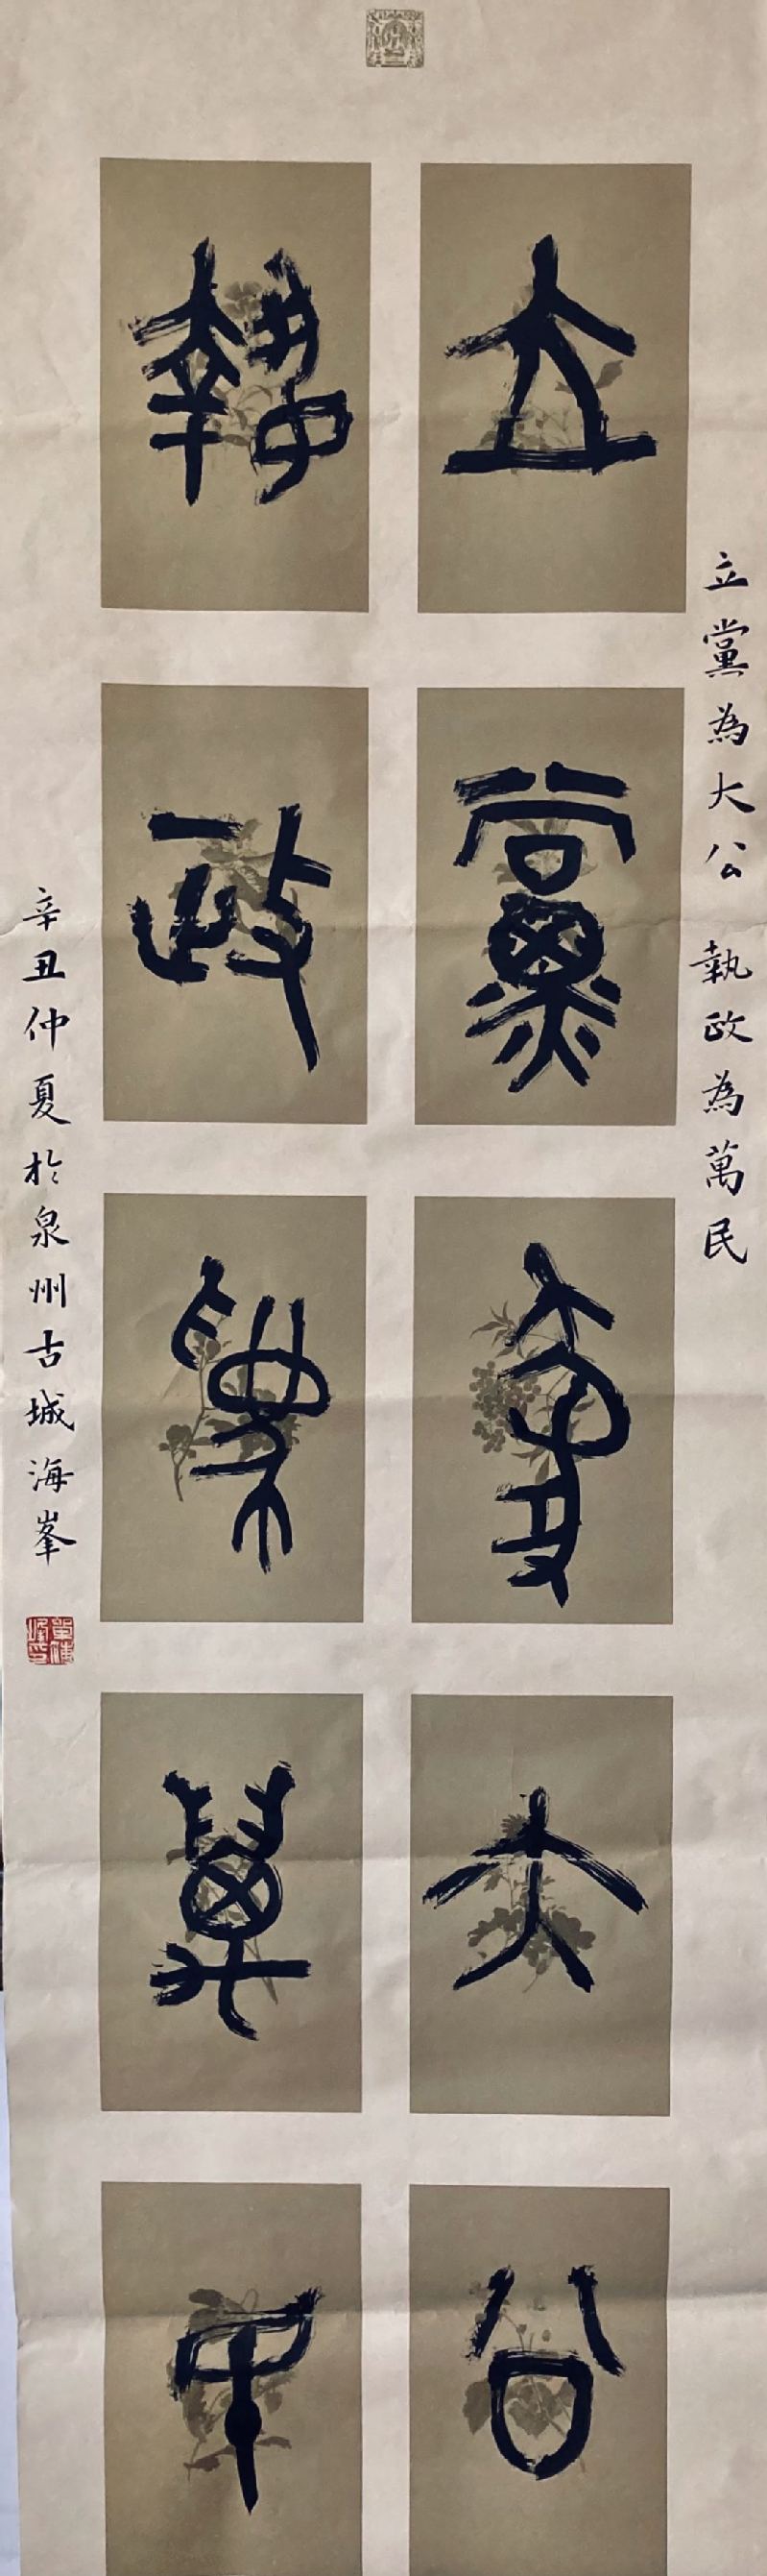 立黨為大公
執政為萬民
立黨為大公 執政為萬民
辛丑仲夏於泉州古城海峯